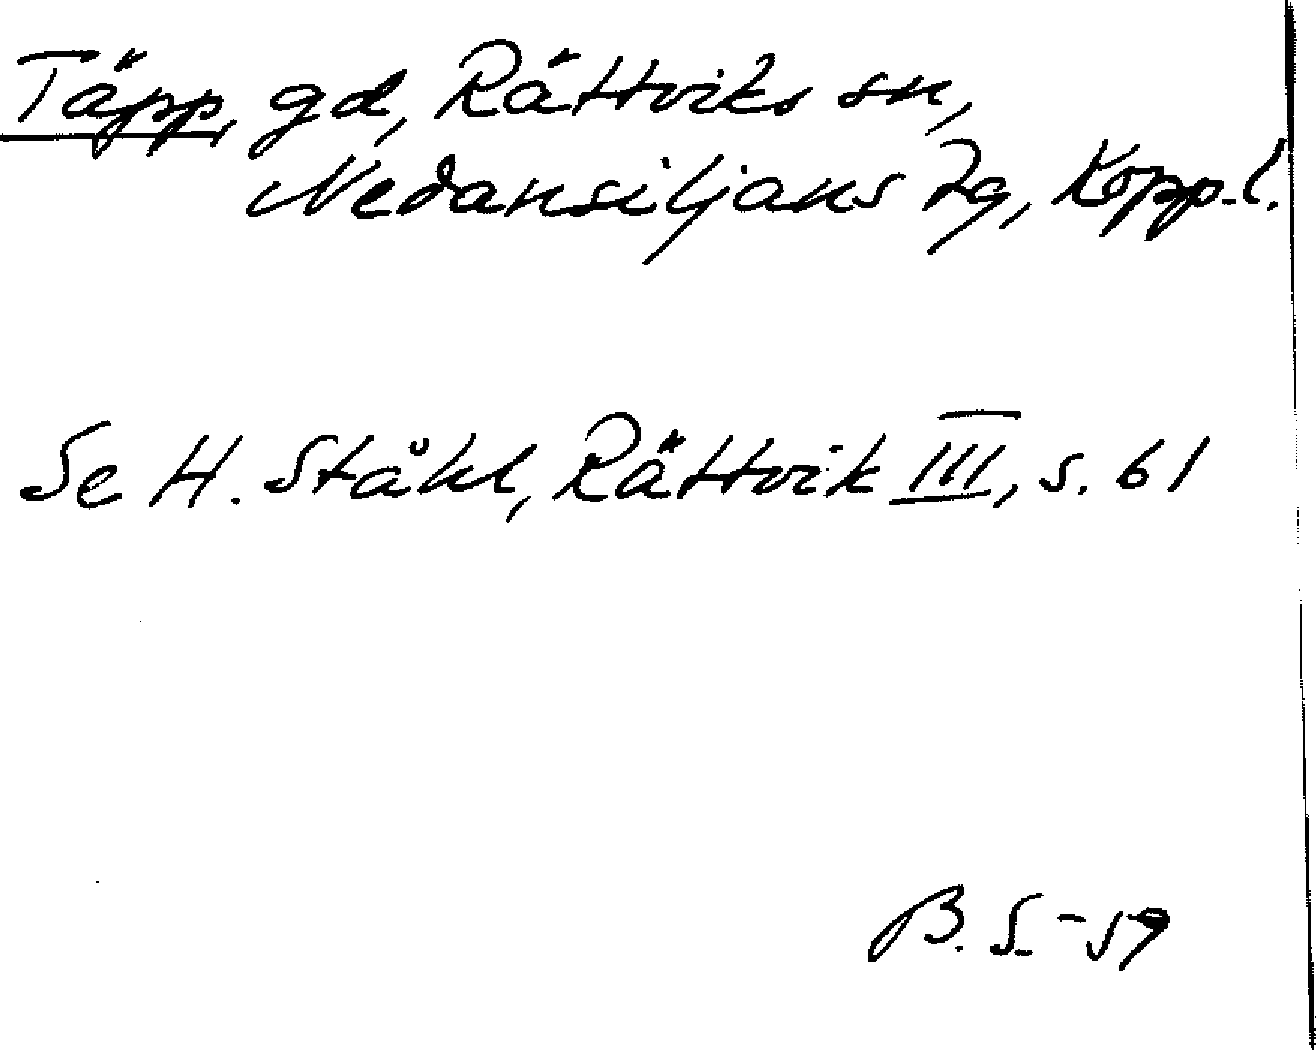 Täpp, gd, Rättviks sn,
Nedansiljans tg, Kopp.l.
Se H. Ståhl, Rättvik III, s. 61
B. S. -57